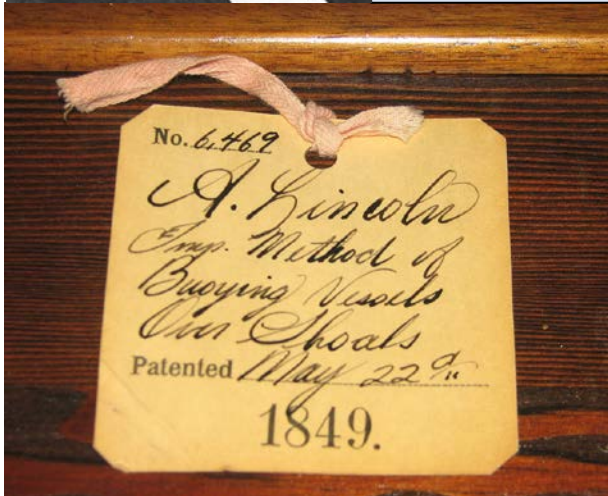 No. 6,469
A. Lincoln
Imp. Method of
Buoying Vessels
Over Shoals
Patented May 22
1849.